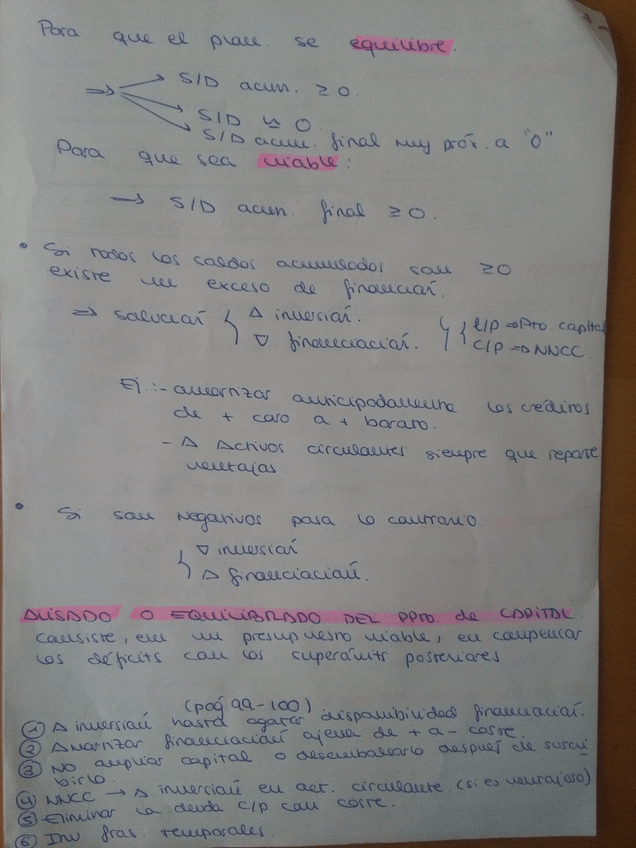 Para que el plan. se equilibre.
⇒ S/D acum. ≥ 0.
S/D ≃ 0
S/D acum. final muy próx. a "0"
Para que sea viable:
→ S/D acum. final ≥ 0.
• Si todos los saldos acumulados son ≥0
existe un exceso de financiac.
⇒ solución { Δ inversión.
∇ financiación. } { L/P ⇒ Pto. capital
C/P ⇒ NNCC.
Ej.:- amortizar anticipadamente los créditos
de + caro a + barato.
- Δ Activos circulantes siempre que reporte
ventajas.
• Si son negativos pasa lo contrario.
{ ∇ inversión
Δ financiación.
ALISADO O EQUILIBRADO DEL PPTO. de CAPITAL
consiste, en un presupuesto viable, en compensar
los déficits con los superávits posteriores
(pág 99-100)
① Δ inversión hasta agotar disponibilidad financiación.
② Amortizar financiación ajena de + a - coste.
③ No ampliar capital o desembolsarlo después de suscri
birlo.
④ NNCC → Δ inversión en act. circulante (si es ventajoso)
⑤ Eliminar la deuda C/P con coste.
⑥ Inv fras. temporales.